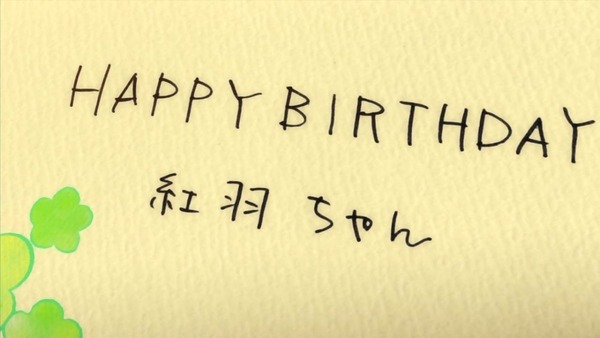 HAPPY BIRTHDAY
紅羽ちゃん